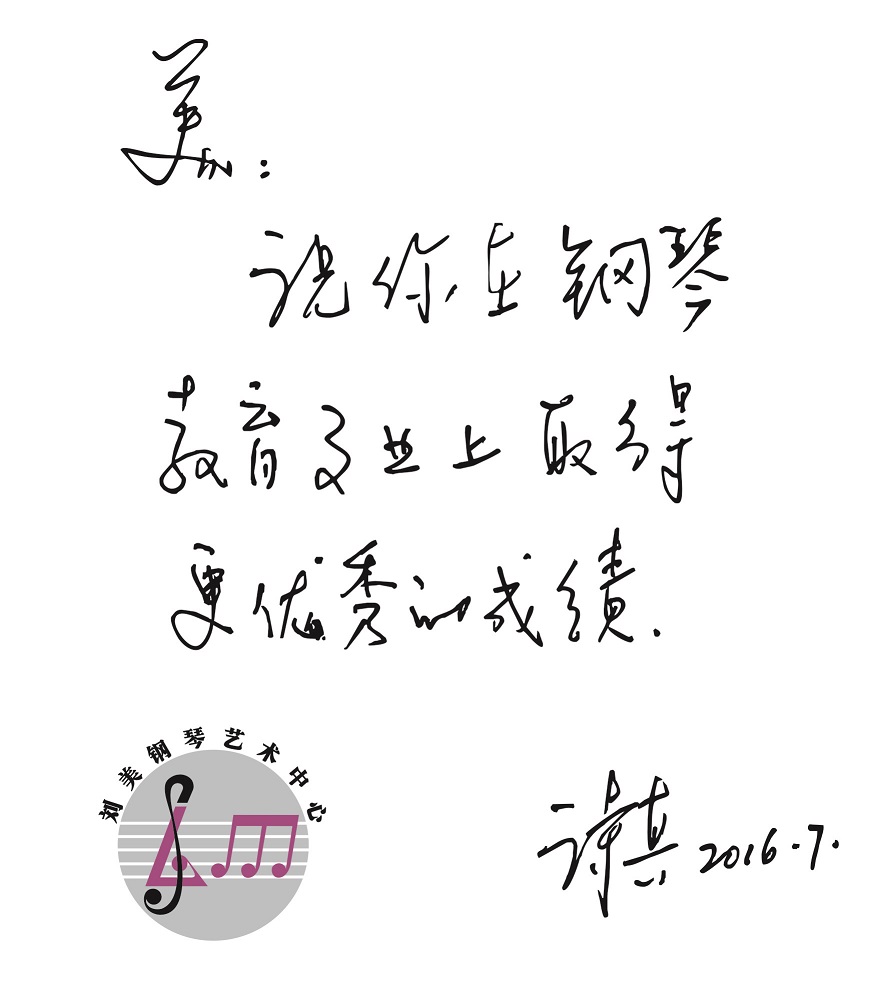 美:
祝你在钢琴
教育事业上取得
更优秀的成绩.
刘美钢琴艺术中心
诗真 2016.7.